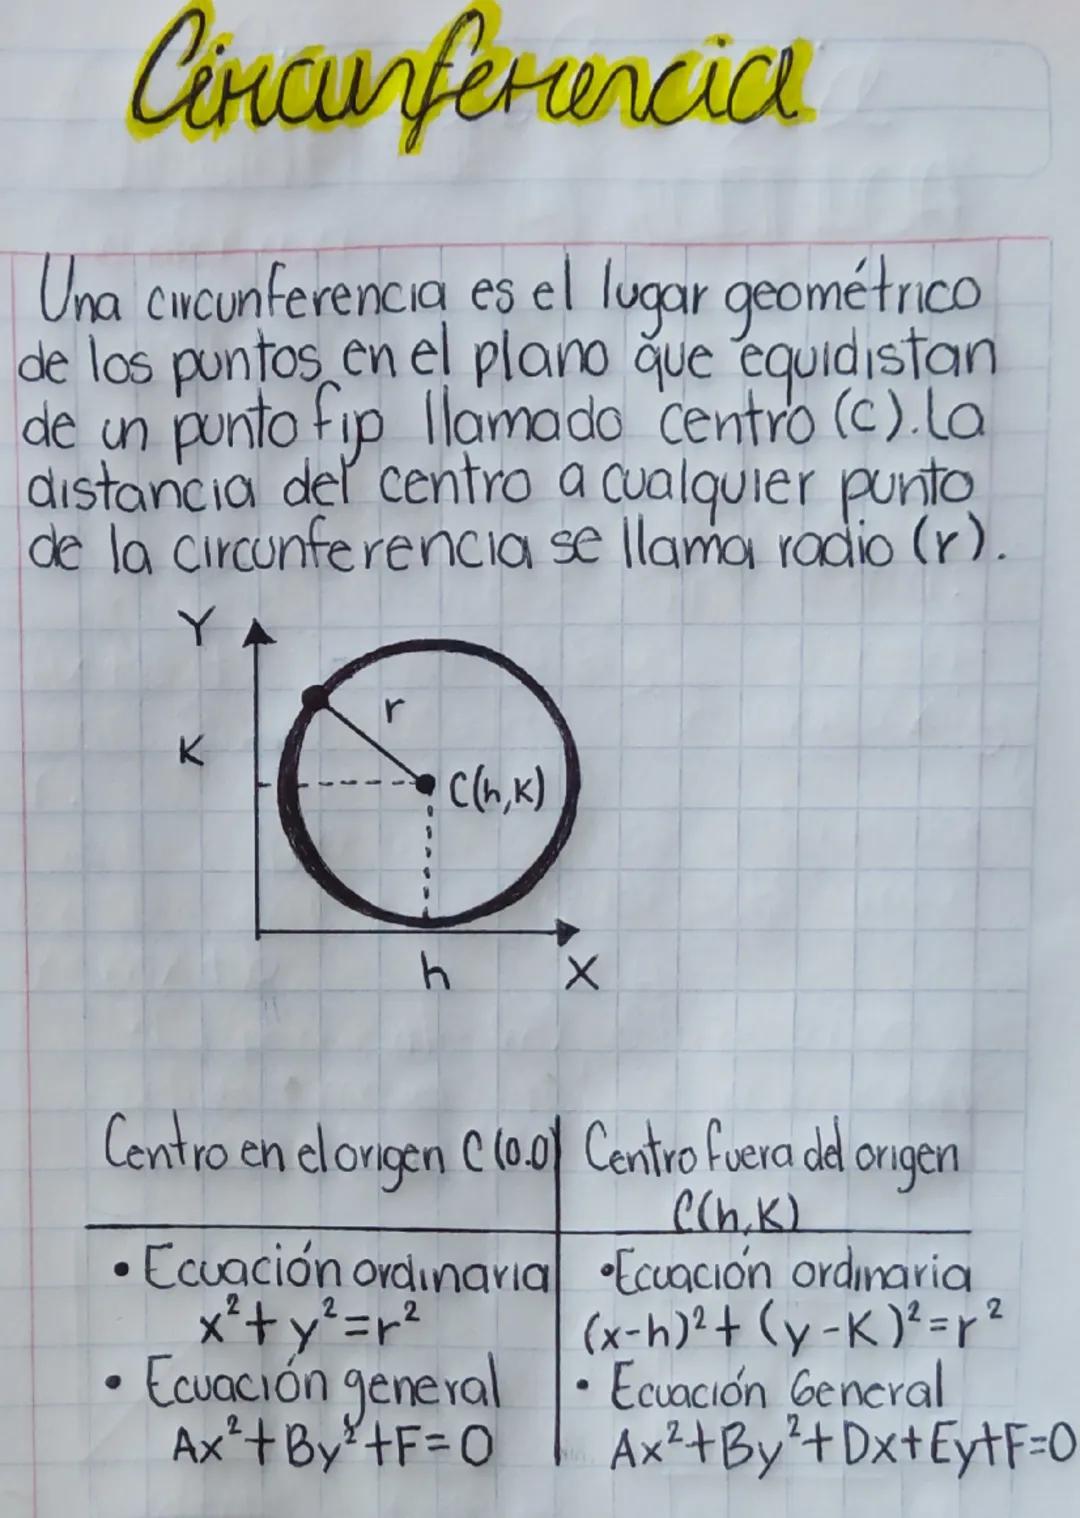 Circunferencia
Una circunferencia es el lugar geométrico
de los puntos en el plano que equidistan
de un punto fijo llamado centro (C). La
distancia del centro a cualquier punto
de la circunferencia se llama radio (r).
Y
r
K
C(h,K)
h
X
Centro en el origen C (0.0)
Centro fuera del origen
C(h,K)
• Ecuación ordinaria
x²+y²=r²
• Ecuación general
Ax²+By²+F=0
• Ecuación ordinaria
(x-h)²+(y-K)²=r²
• Ecuación General
Ax²+By²+Dx+Ey+F=0